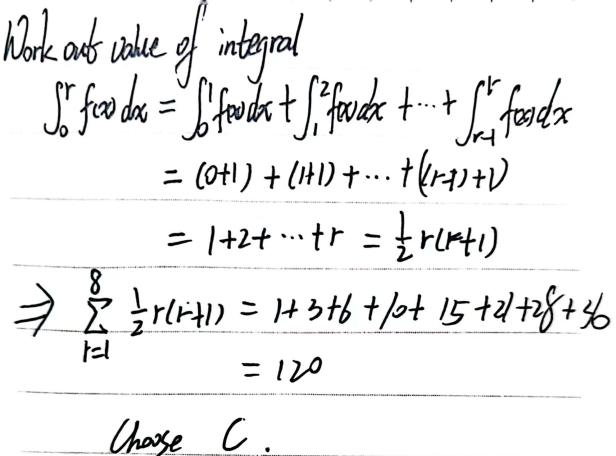 Work out value of integral
∫₀^r f(x) dx = ∫₀^1 f(x) dx + ∫₁^2 f(x) dx + ⋯ + ∫_{r-1}^r f(x) dx
= (0+1) + (1+1) + ⋯ + ((r-1)+1)
= 1+2+ ⋯ +r = ½ r(r+1)
⇒ ∑_{r=1}^{8} ½ r(r+1) = 1+3+6+10+15+21+28+36
= 120
Choose C.